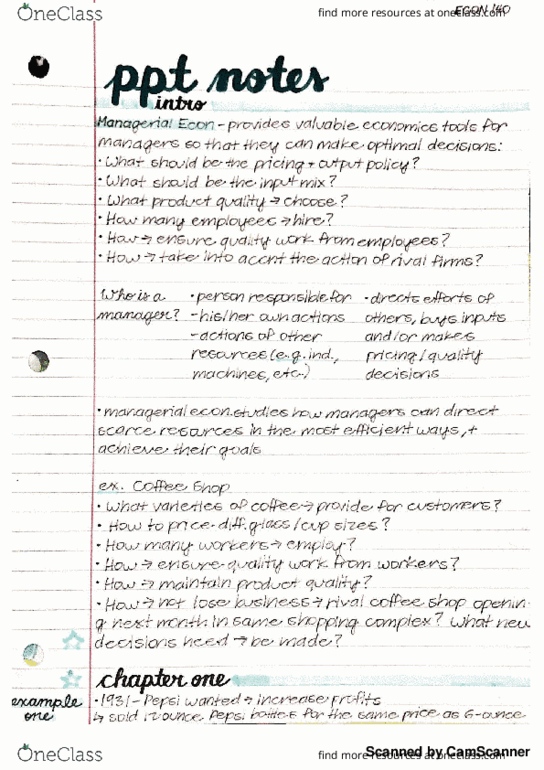 OneClass
find more resources at oneclass.com
ECON 140
ppt notes
intro
Managerial Econ - provides valuable economics tools for
managers so that they can make optimal decisions:
• What should be the pricing + output policy?
• What should be the input mix?
• What product quality → choose?
• How many employees → hire?
• How → ensure quality work from employees?
• How → take into accnt the action of rival firms?
Who is a
manager?
• person responsible for
- his/her own actions
- actions of other
resources (e.g. ind.,
machines, etc.)
• directs efforts of
others, buys inputs
and/or makes
pricing/quality
decisions
• managerial econ. studies how managers can direct
scarce resources in the most efficient ways, +
achieve their goals
ex. Coffee Shop
• What varieties of coffee → provide for customers?
• How to price diff. glass/cup sizes?
• How many workers → employ?
• How → ensure quality work from workers?
• How → maintain product quality?
• How → not lose business → rival coffee shop openin
g next month in same shopping complex? What new
decisions need → be made?
chapter one
example
one
• 1931 - Pepsi wanted → increase profits
↳ sold 12 ounce Pepsi bottles for the same price as 6-ounce
OneClass
find more resources at oneclass.com
Scanned by CamScanner